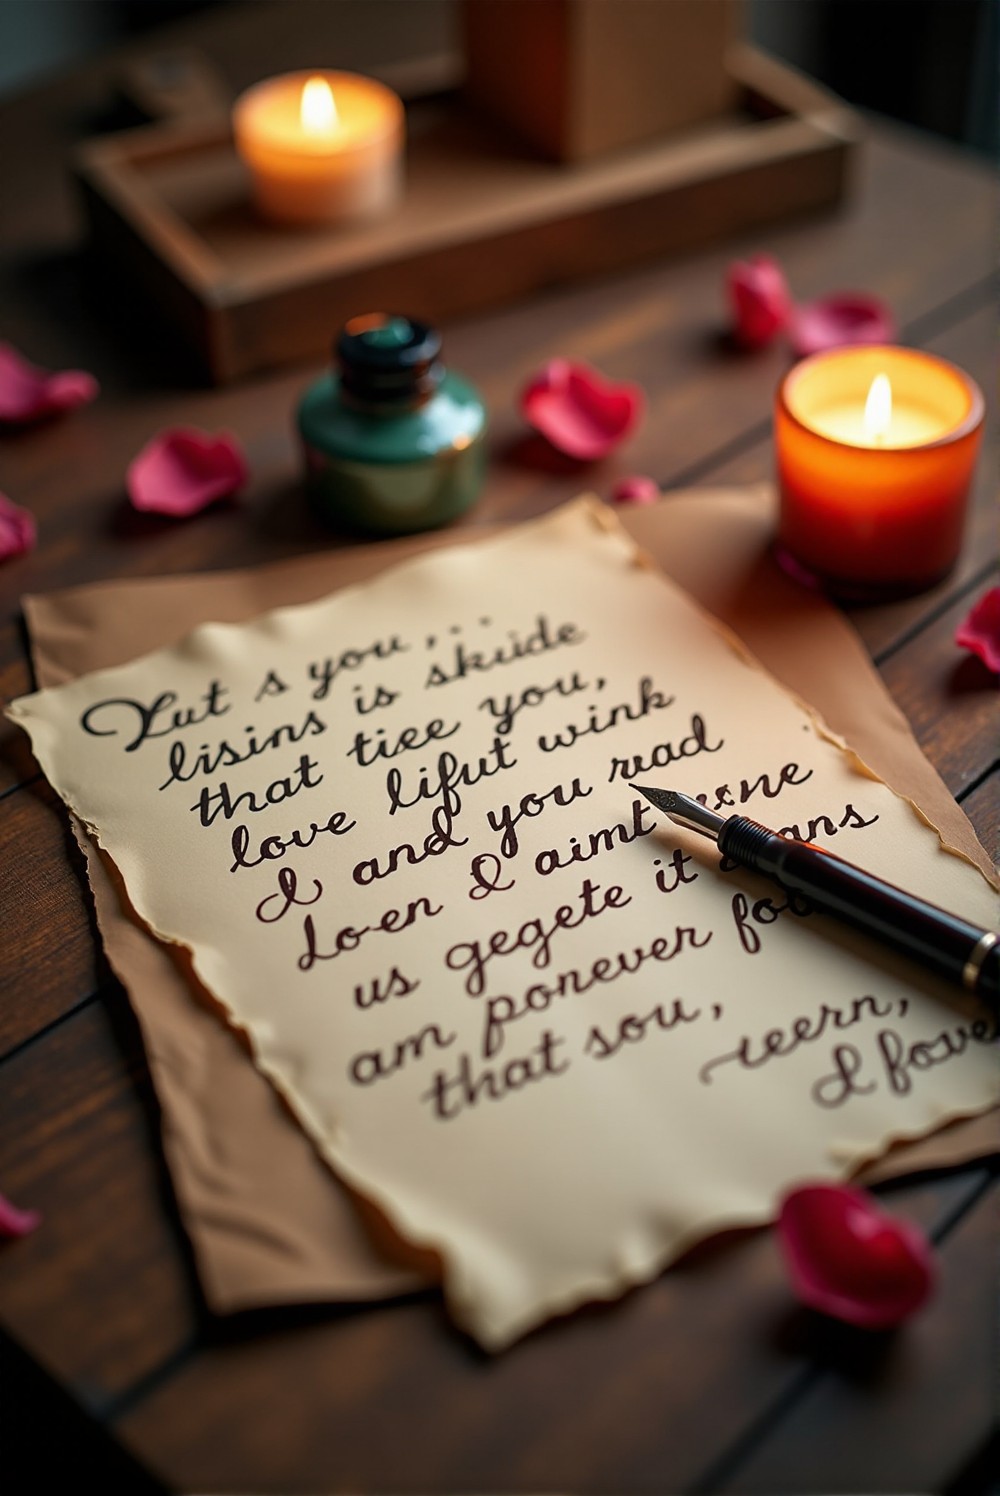 Yut s you,..
lisins is skuide
that tiee you,
love lifut wink
I and you read
Loen I aimt
us gegete it
am ponever
that sou,
ieern,
I fove